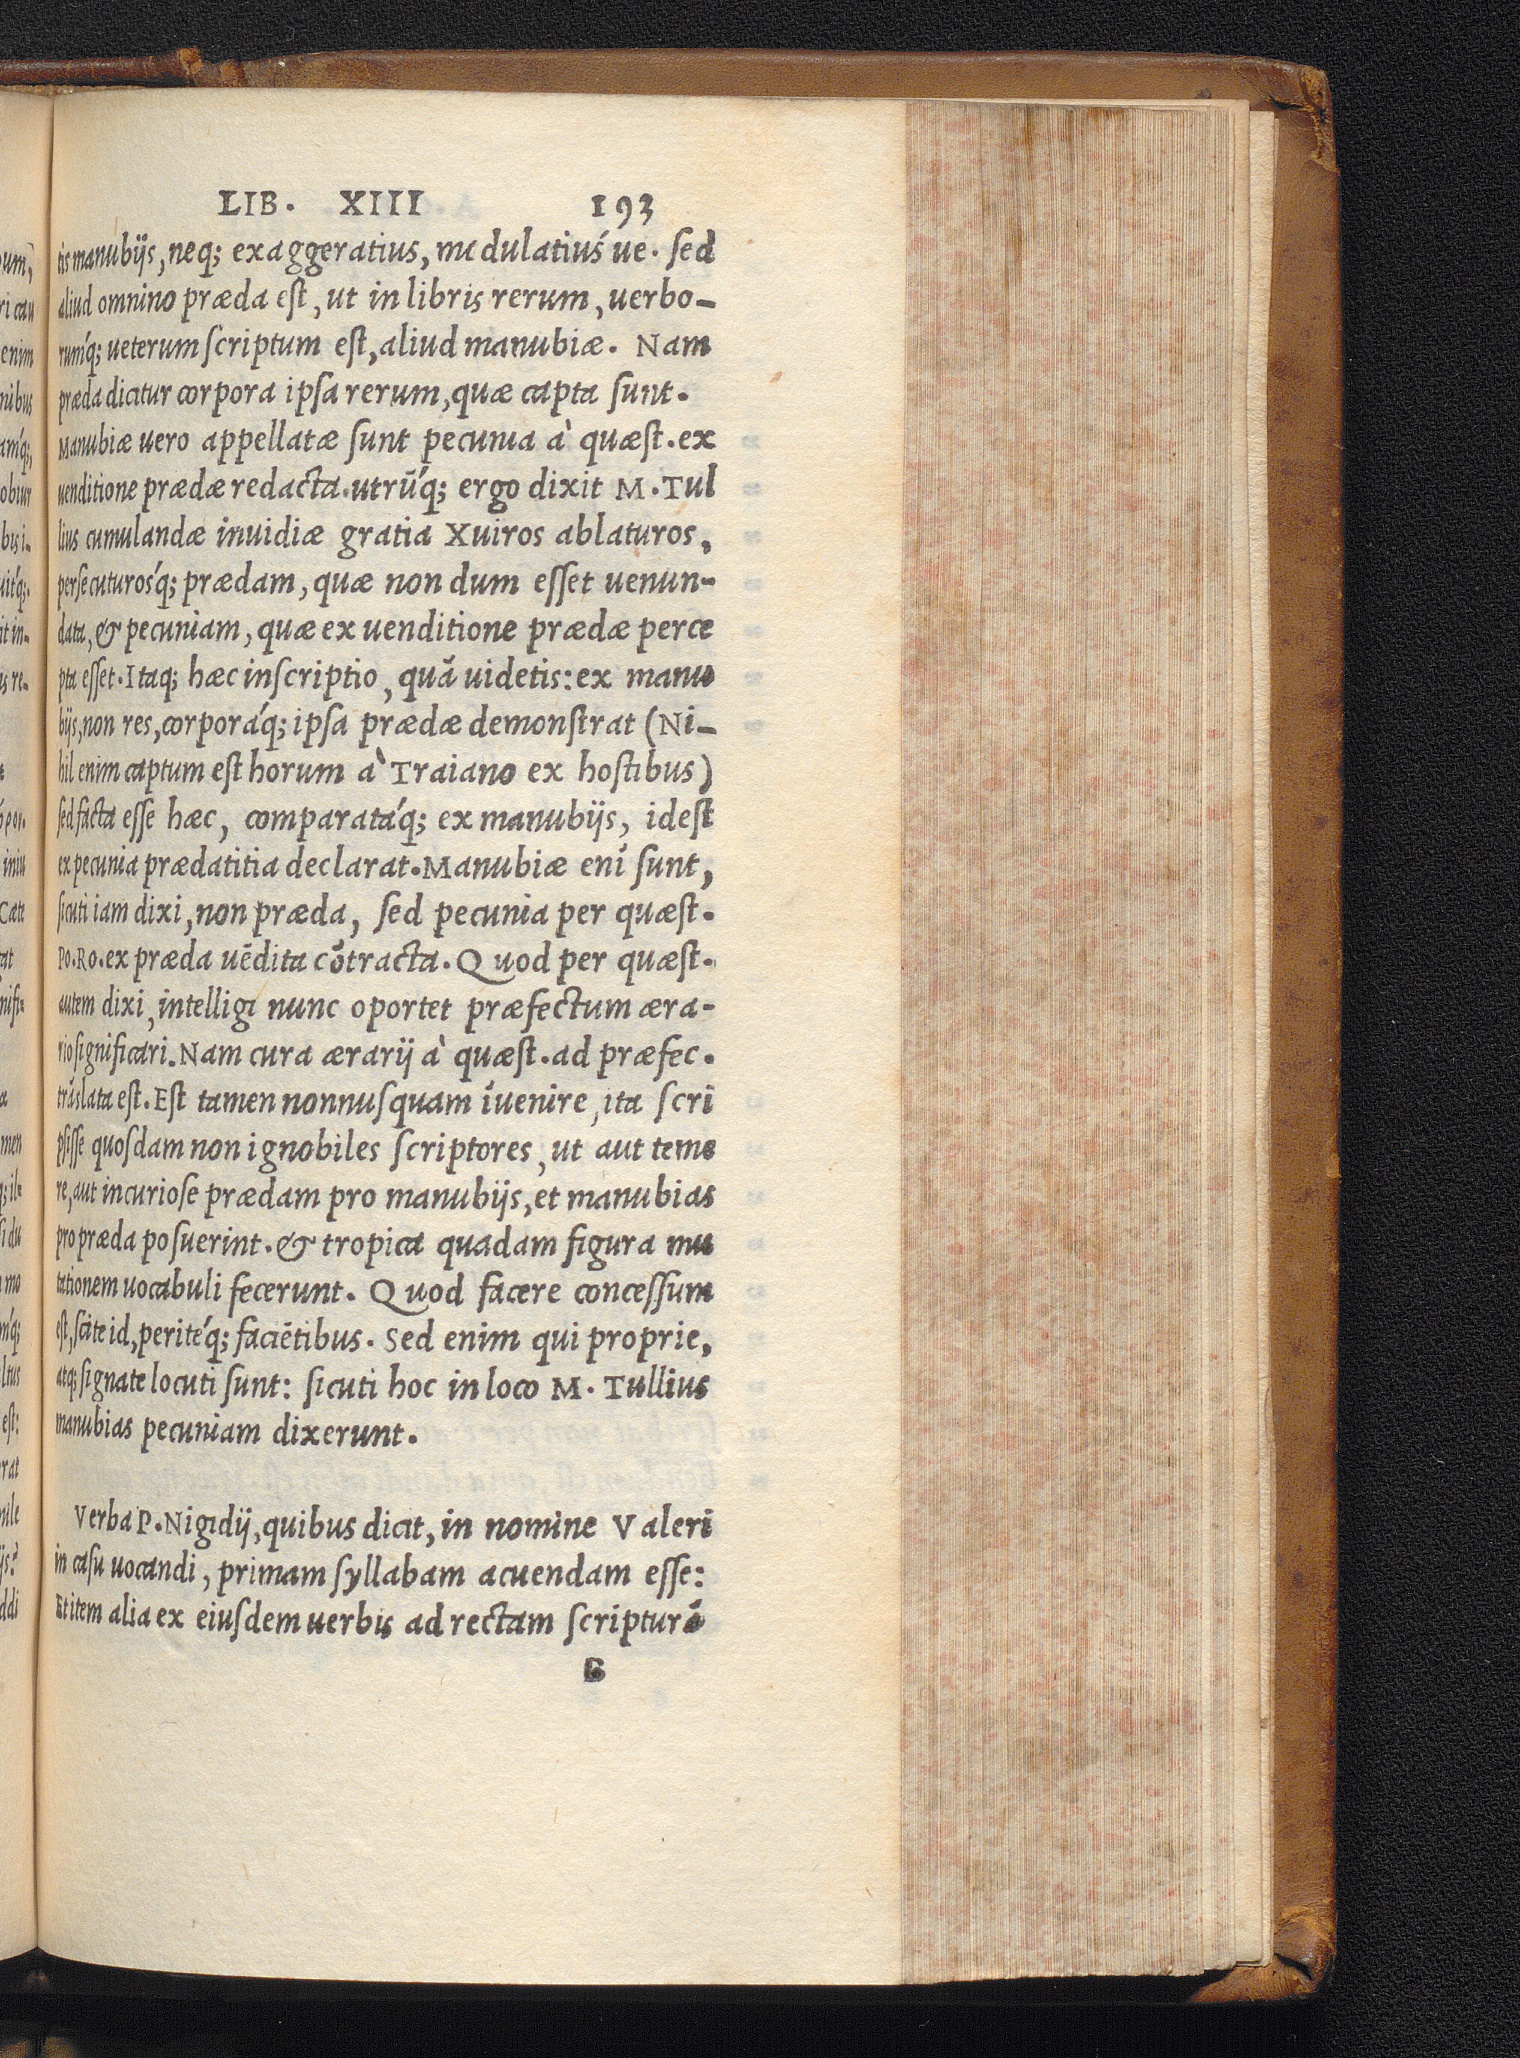 LIB. XIII 193
tis manubijs, neq; exaggeratius, mo dulatiús ue. sed
aliud omnino præda est, ut in libris rerum, uerbo-
rumq́; ueterum scriptum est, aliud manubiæ. Nam
præda dicitur corpora ipsa rerum, quæ capta sunt.
Manubiæ uero appellatæ sunt pecunia à quæst. ex
uenditione prædæ redacta. utrūq́; ergo dixit M. Tul
lius cumulandæ inuidiæ gratia Xuiros ablaturos,
persecuturosq́; prædam, quæ non dum esset uenun-
data, & pecuniam, quæ ex uenditione prædæ perce
pta esset. Itaq; hæc inscriptio, quā uidetis: ex manu
bijs, non res, corporáq; ipsa prædæ demonstrat (Ni-
hil enim captum est horum à Traiano ex hostibus)
sed facta esse hæc, comparatáq; ex manubijs, idest
ex pecunia prædatitia declarat. Manubiæ enī sunt,
sicuti iam dixi, non præda, sed pecunia per quæst.
Po. Ro. ex præda uēdita cōtracta. Quod per quæst.
autem dixi, intelligi nunc oportet præfectum æra-
rio significari. Nam cura ærarij à quæst. ad præfec.
trāslata est. Est tamen nonnusquam īuenire, ita scri
psisse quosdam non ignobiles scriptores, ut aut teme
re, aut incuriose prædam pro manubijs, et manubias
pro præda posuerint. & tropica quadam figura mu
tationem uocabuli fecerunt. Quod facere concessum
est, scite id, peritéq; faciētibus. Sed enim qui proprie,
atq; signate locuti sunt: sicuti hoc in loco M. Tullius
manubias pecuniam dixerunt.
Verba P. Nigidij, quibus dicit, in nomine Valeri
in casu uocandi, primam syllabam acuendam esse:
Et item alia ex eiusdem uerbis ad rectam scripturā